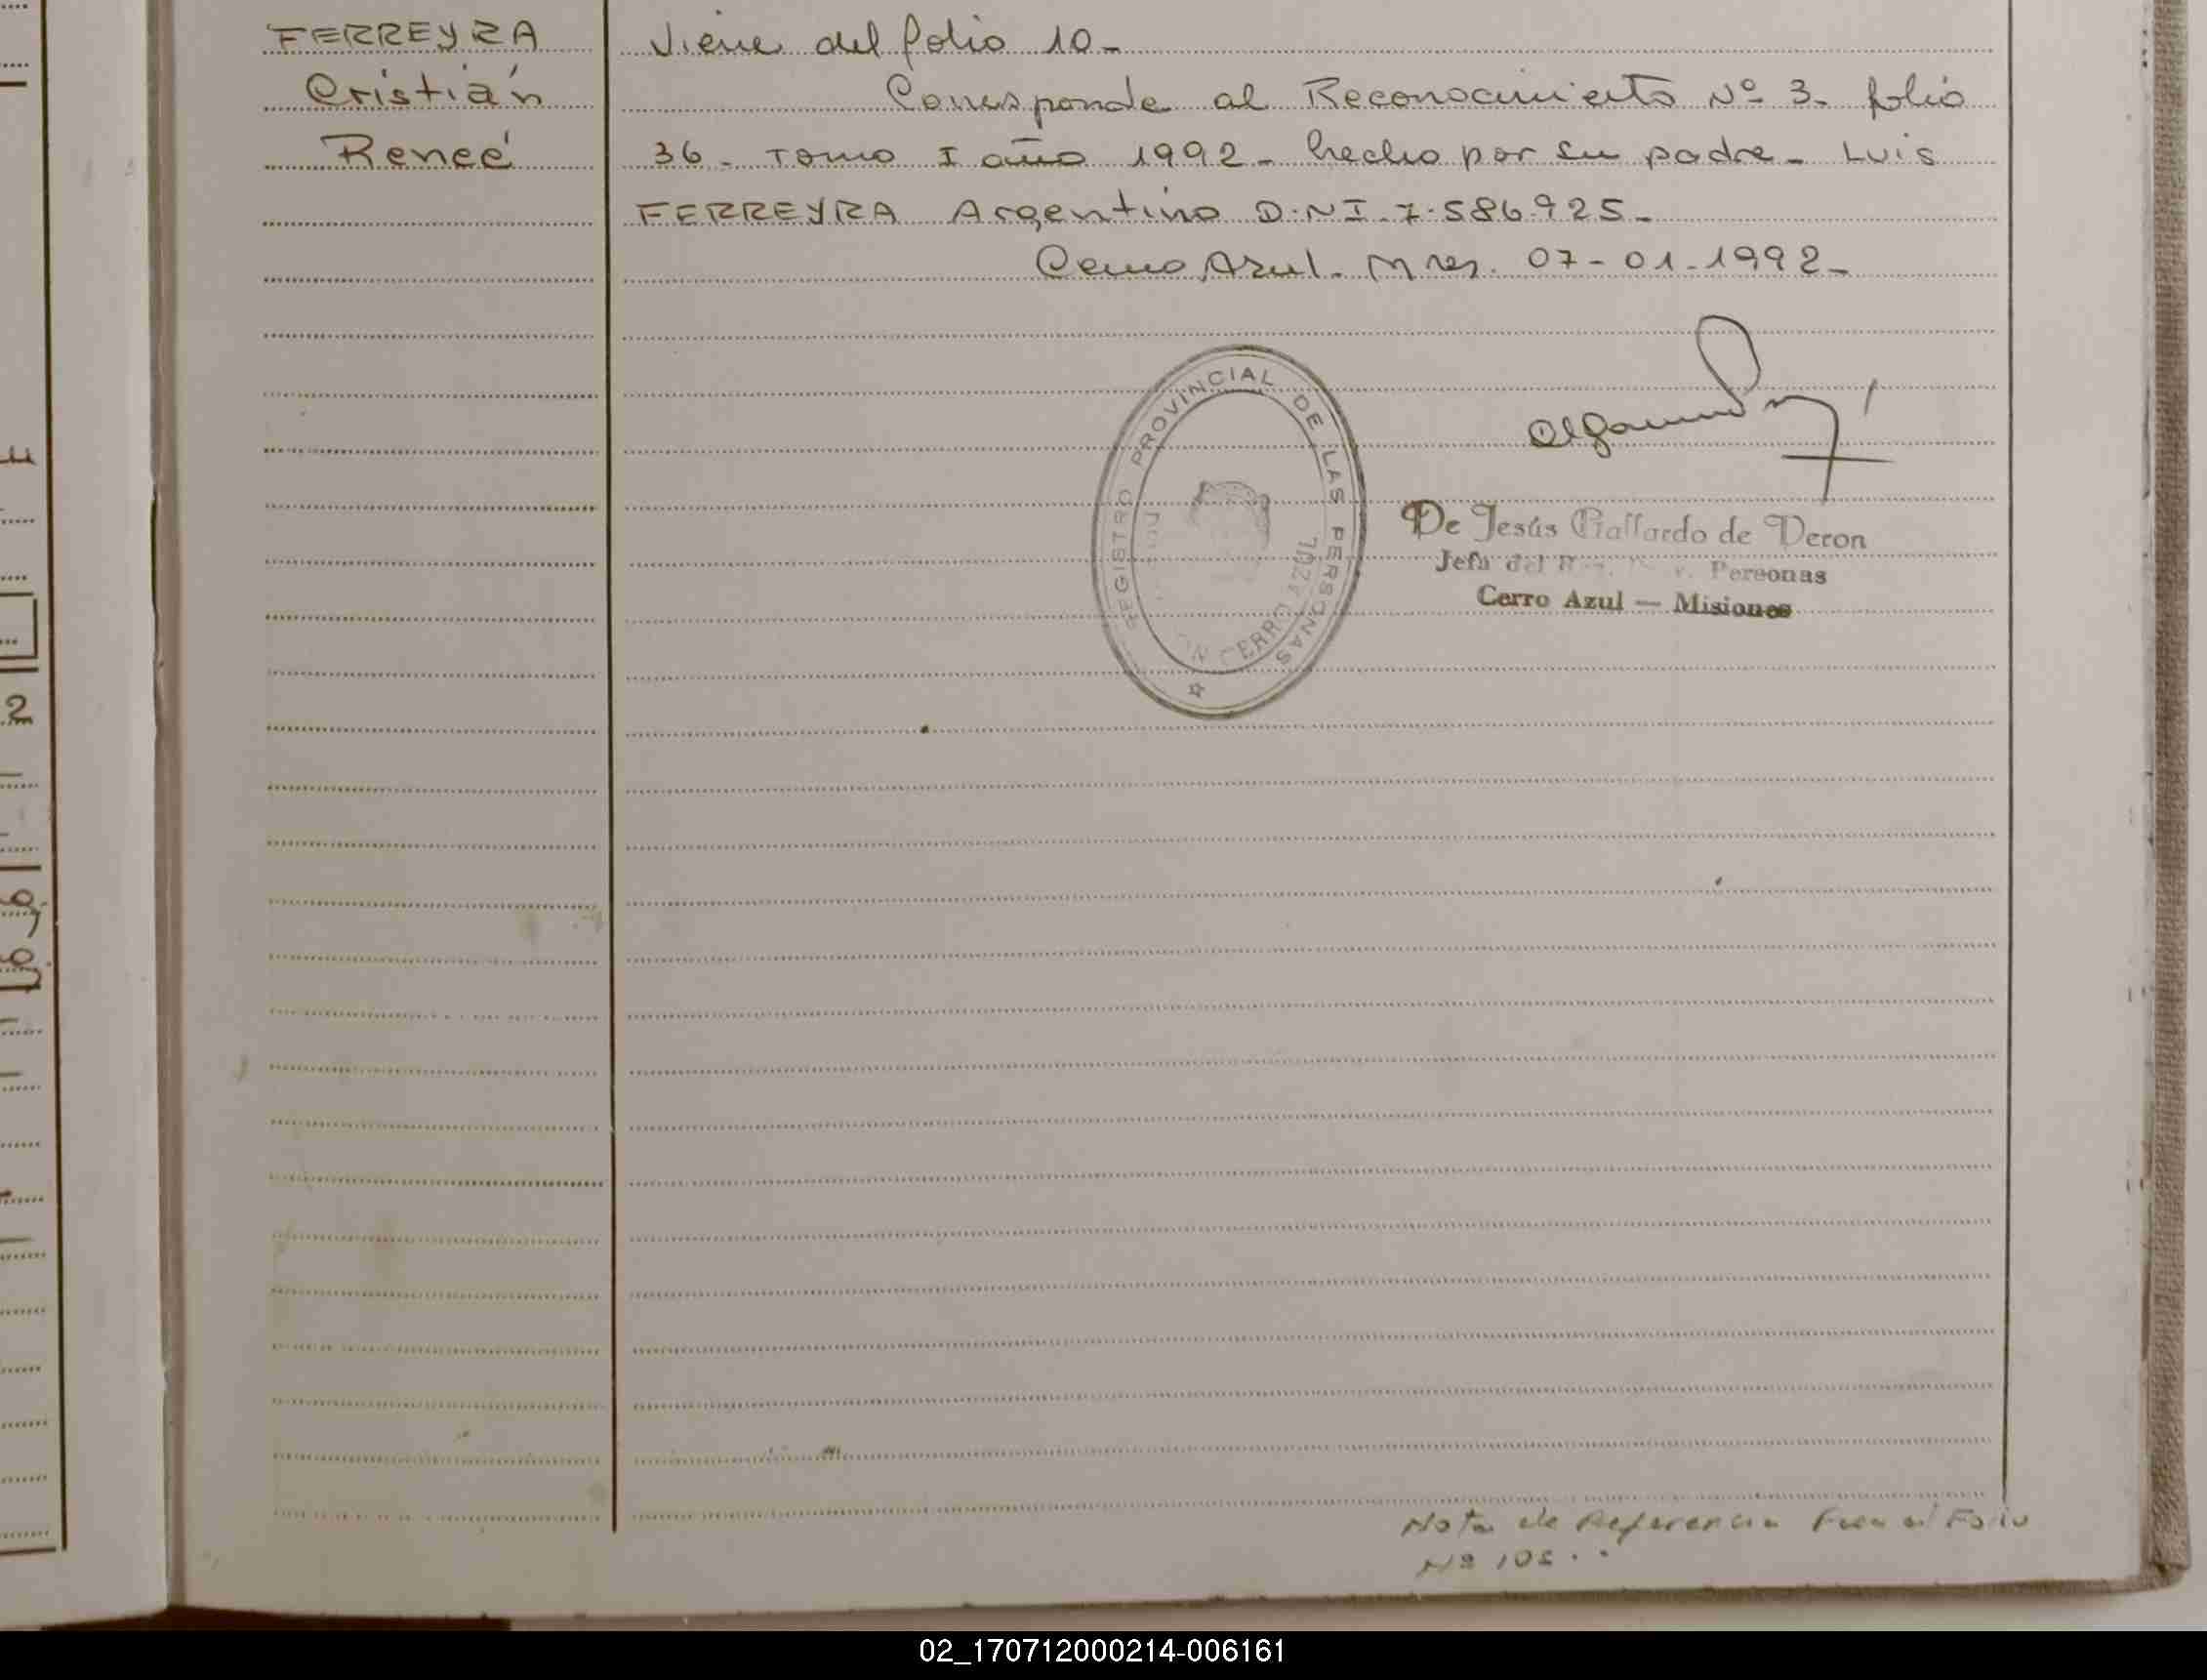 FERREYRA
Cristián
Reneé
Viene del folio 10-
Corresponde al Reconocimiento Nº 3- folio
36- Tomo I año 1992- hecho por su padre- Luis
FERREYRA Argentino D.N.I. 7.586.925-
Cerro Azul- Mnes. 07-01-1992-
REGISTRO PROVINCIAL DE LAS PERSONAS
CERRO AZUL
De Jesús Gallardo de Deron
Jefa del Personas
Cerro Azul — Misiones
Nota de Referencia Folio
Nº
02_170712000214-006161